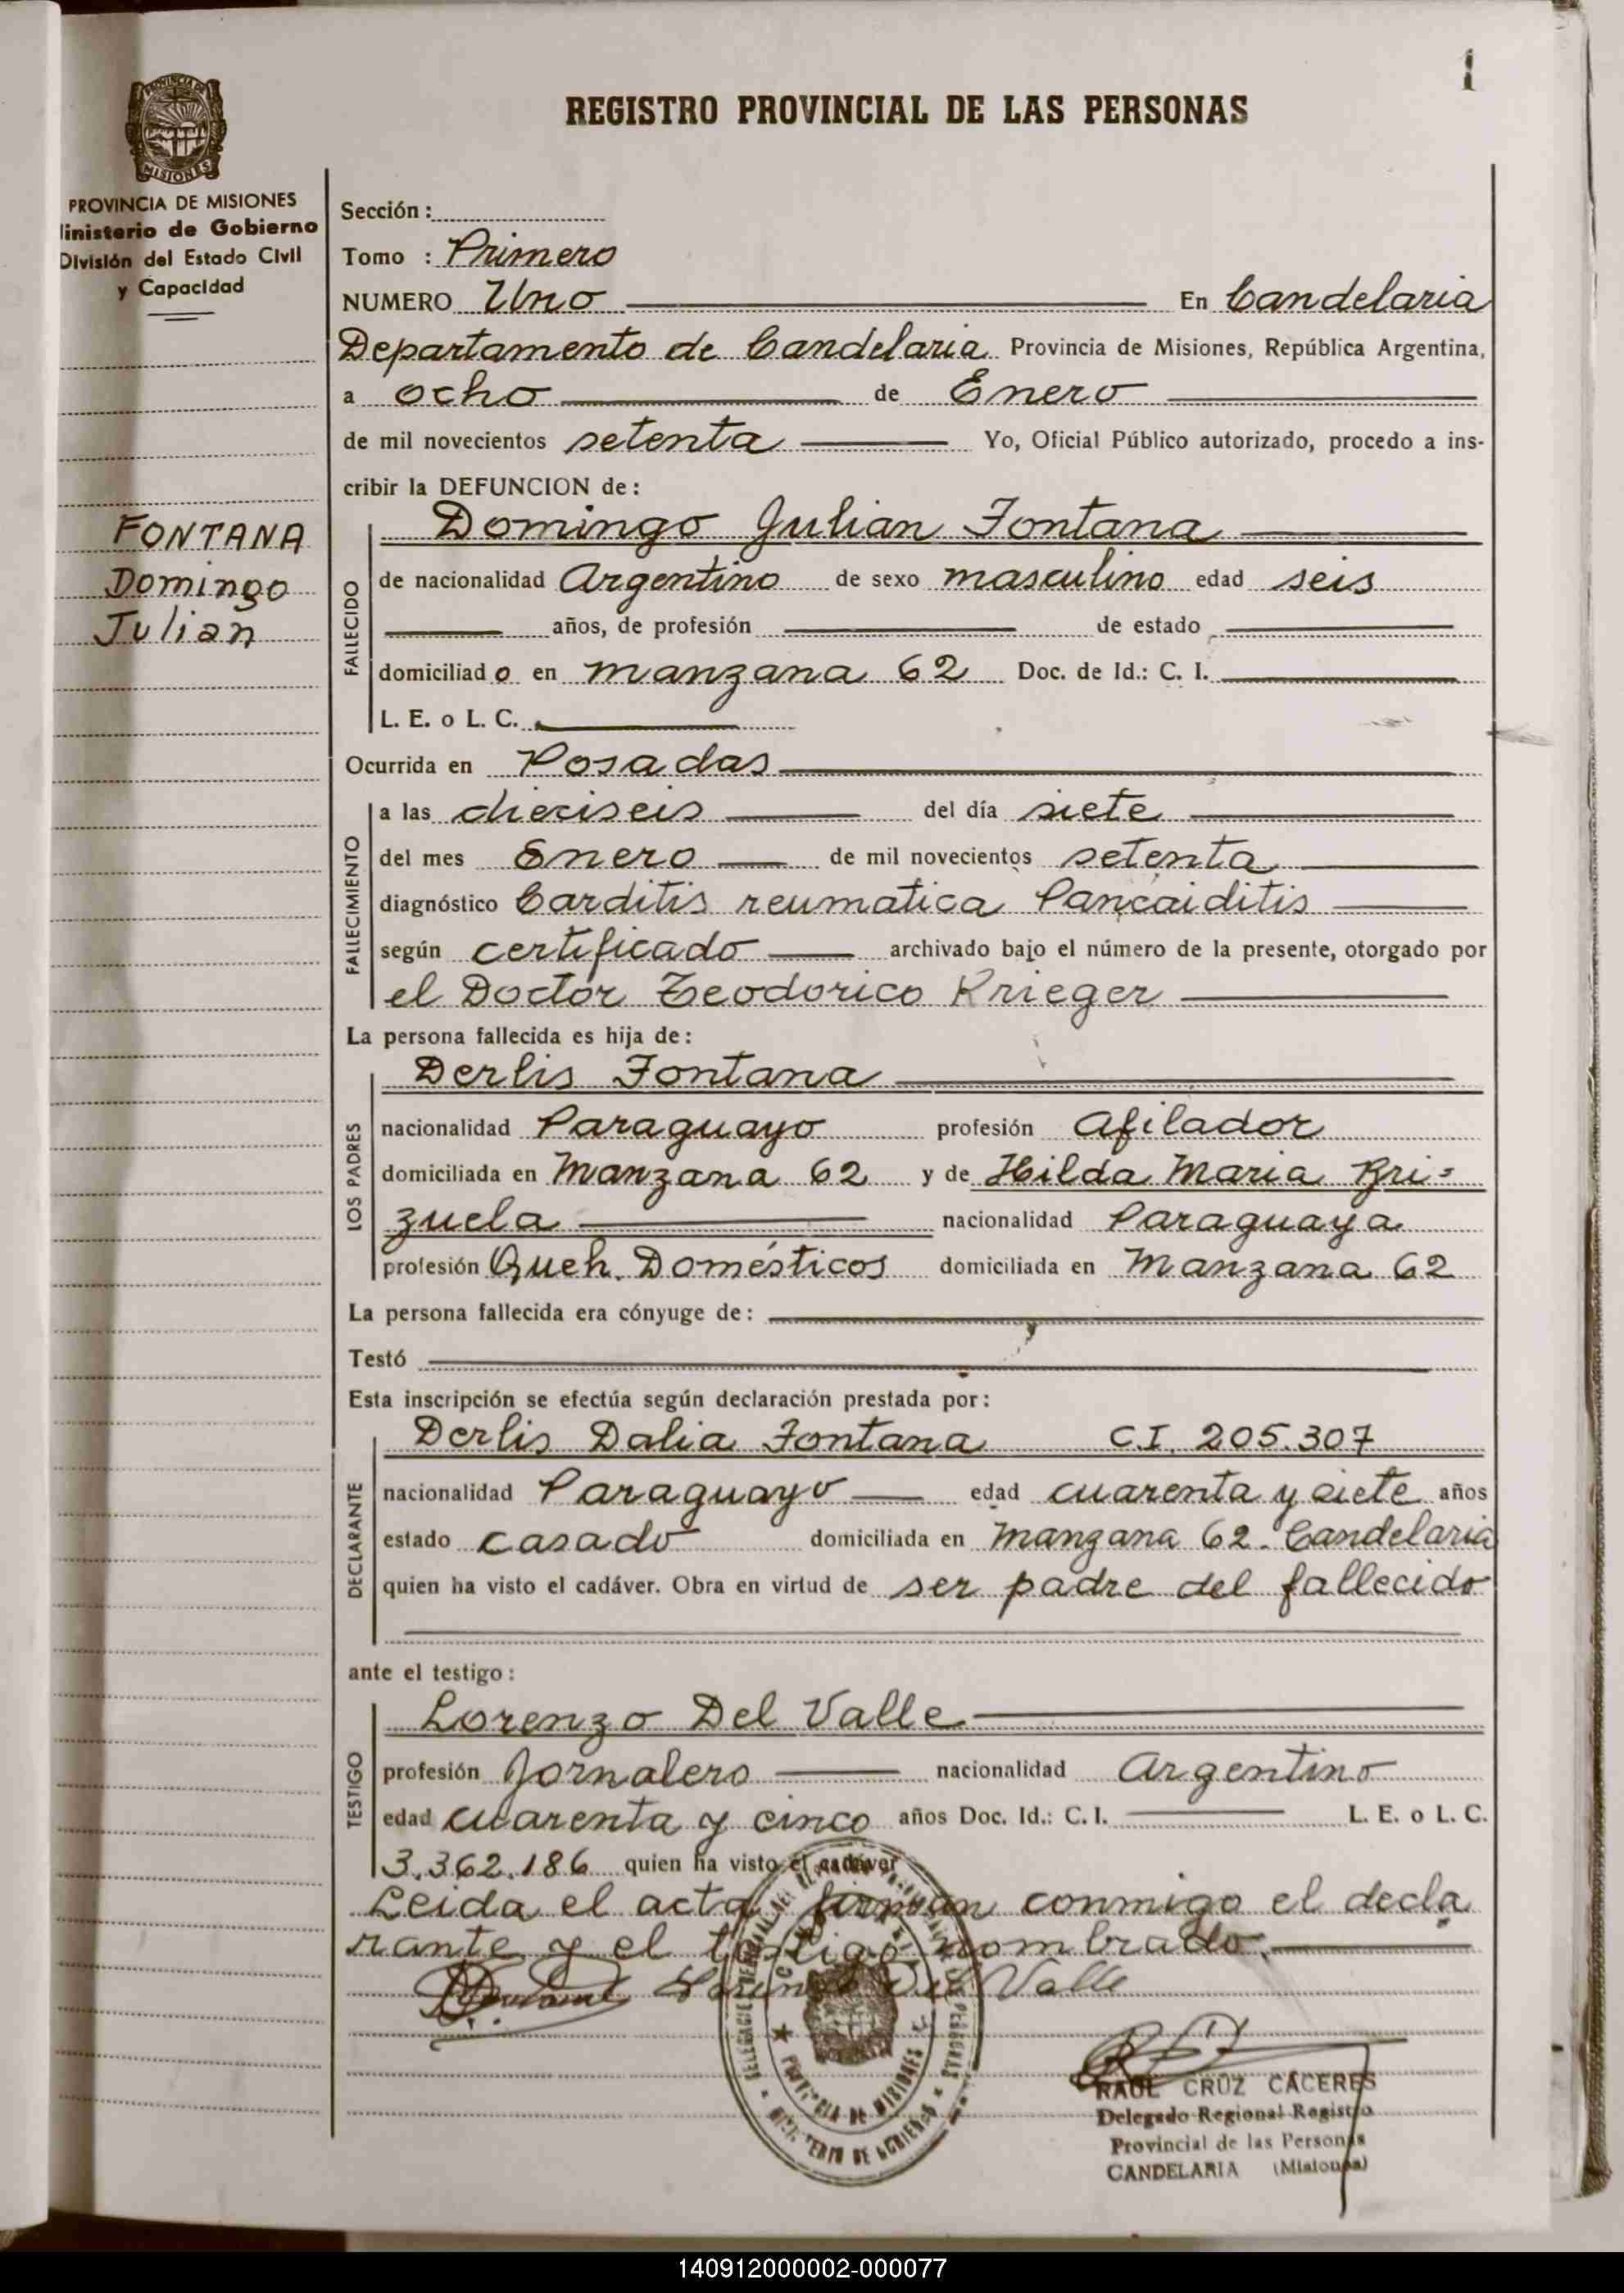 1
REGISTRO PROVINCIAL DE LAS PERSONAS
PROVINCIA DE MISIONES
inisterio de Gobierno
División del Estado Civil
y Capacidad
FONTANA
Domingo
Julian
Sección :
Tomo : Primero
NUMERO Uno En Candelaria
Departamento de Candelaria Provincia de Misiones, República Argentina,
a ocho de Enero
de mil novecientos setenta Yo, Oficial Público autorizado, procedo a ins-
cribir la DEFUNCION de :
FALLECIDO
Domingo Julian Fontana
de nacionalidad Argentino de sexo masculino edad seis
años, de profesión de estado
domiciliado en manzana 62 Doc. de Id.: C. I.
L. E. o L. C.
Ocurrida en Posadas
FALLECIMIENTO
a las dieciseis del día siete
del mes Enero de mil novecientos setenta
diagnóstico Carditis reumatica Pancaiditis
según certificado archivado bajo el número de la presente, otorgado por
el Doctor Teodorico Krieger
La persona fallecida es hija de :
LOS PADRES
Derlis Fontana
nacionalidad Paraguayo profesión Afilador
domiciliada en Manzana 62 y de Hilda Maria Bri=
zuela nacionalidad Paraguaya
profesión Queh. Domésticos domiciliada en Manzana 62
La persona fallecida era cónyuge de :
Testó
Esta inscripción se efectúa según declaración prestada por :
DECLARANTE
Derlis Dalia Fontana C.I. 205.307
nacionalidad Paraguayo edad cuarenta y siete años
estado casado domiciliada en manzana 62. Candelaria
quien ha visto el cadáver. Obra en virtud de ser padre del fallecido
ante el testigo :
TESTIGO
Lorenzo Del Valle
profesión Jornalero nacionalidad Argentino
edad cuarenta y cinco años Doc. Id.: C. I. L. E. o L. C.
3.362.186 quien ha visto el cadáver
Leida el acta firman conmigo el decla
rante y el testigo nombrado.
Lorenzo Del Valle
PROVINCIA DE MISIONES
RAUL CRUZ CACERES
Delegado Regional Registro
Provincial de las Personas
CANDELARIA (Misiones)
140912000002-000077